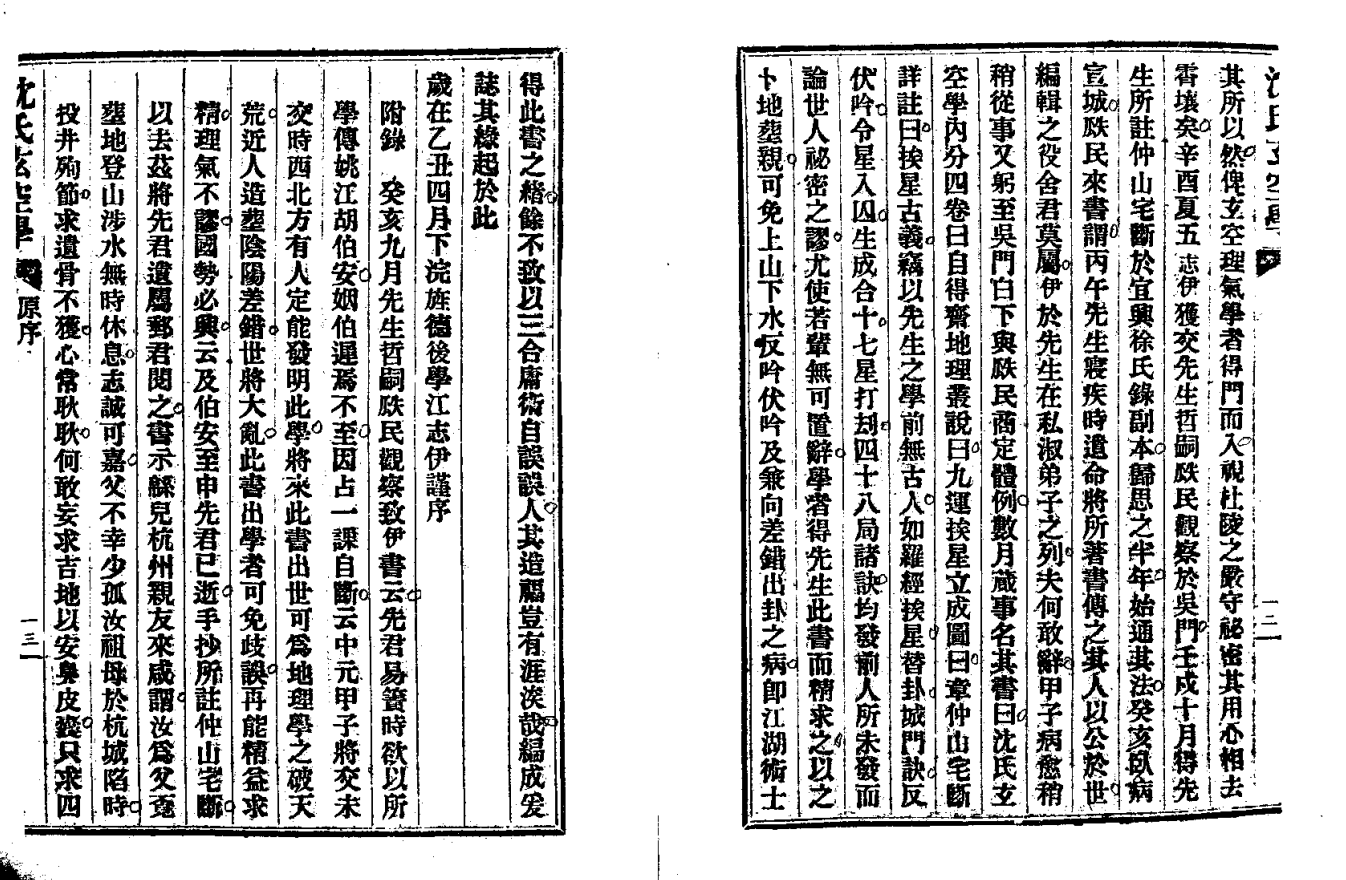 沈氏玄空學
一二
其所以然俾玄空理氣學者得門而入視杜陵之嚴守祕密其用心相去
霄壤矣辛酉夏五志伊獲交先生哲嗣瓞民觀察於吳門壬戍十月得先
生所註仲山宅斷於宜興徐氏錄副本歸思之半年始通其法癸亥臥病
宣城瓞民來書謂丙午先生寢疾時遺命將所著書傳之其人以公於世
編輯之役舍君莫屬伊於先生在私淑弟子之列夫何敢辭甲子病愈稍
稍從事又躬至吳門白下與瓞民商定體例數月蕆事名其書曰沈氏玄
空學內分四卷曰自得齋地理叢說曰九運挨星立成圖曰章仲山宅斷
詳註曰挨星古義竊以先生之學前無古人如羅經挨星替卦城門訣反
伏吟令星入囚生成合十七星打刼四十八局諸訣均發前人所未發而
論世人祕密之謬尤使若輩無可置辭學者得先生此書而精求之以之
卜地塟親可免上山下水反吟伏吟及兼向差錯出卦之病卽江湖術士
得此書之緒餘不致以三合庸術自誤誤人其造福豈有涯涘哉編成爰
誌其緣起於此
歲在乙丑四月下浣旌德後學江志伊謹序
附錄 癸亥九月先生哲嗣瓞民觀察致伊書云先君易簀時欲以所
學傳姚江胡伯安姻伯遲焉不至因占一課自斷云中元甲子將交未
交時西北方有人定能發明此學將來此書出世可爲地理學之破天
荒近人造塟陰陽差錯世將大亂此書出學者可免歧誤再能精益求
精理氣不謬國勢必興云及伯安至申先君已逝手抄所註仲山宅斷
以去茲將先君遺屬郵君閱之書示緜兒杭州親友來咸謂汝爲父覔
塟地登山涉水無時休息志誠可嘉父不幸少孤汝祖母於杭城陷時
投井殉節求遺骨不獲心常耿耿何敢妄求吉地以安臭皮囊只求四
沈氏玄空學
原序
一三